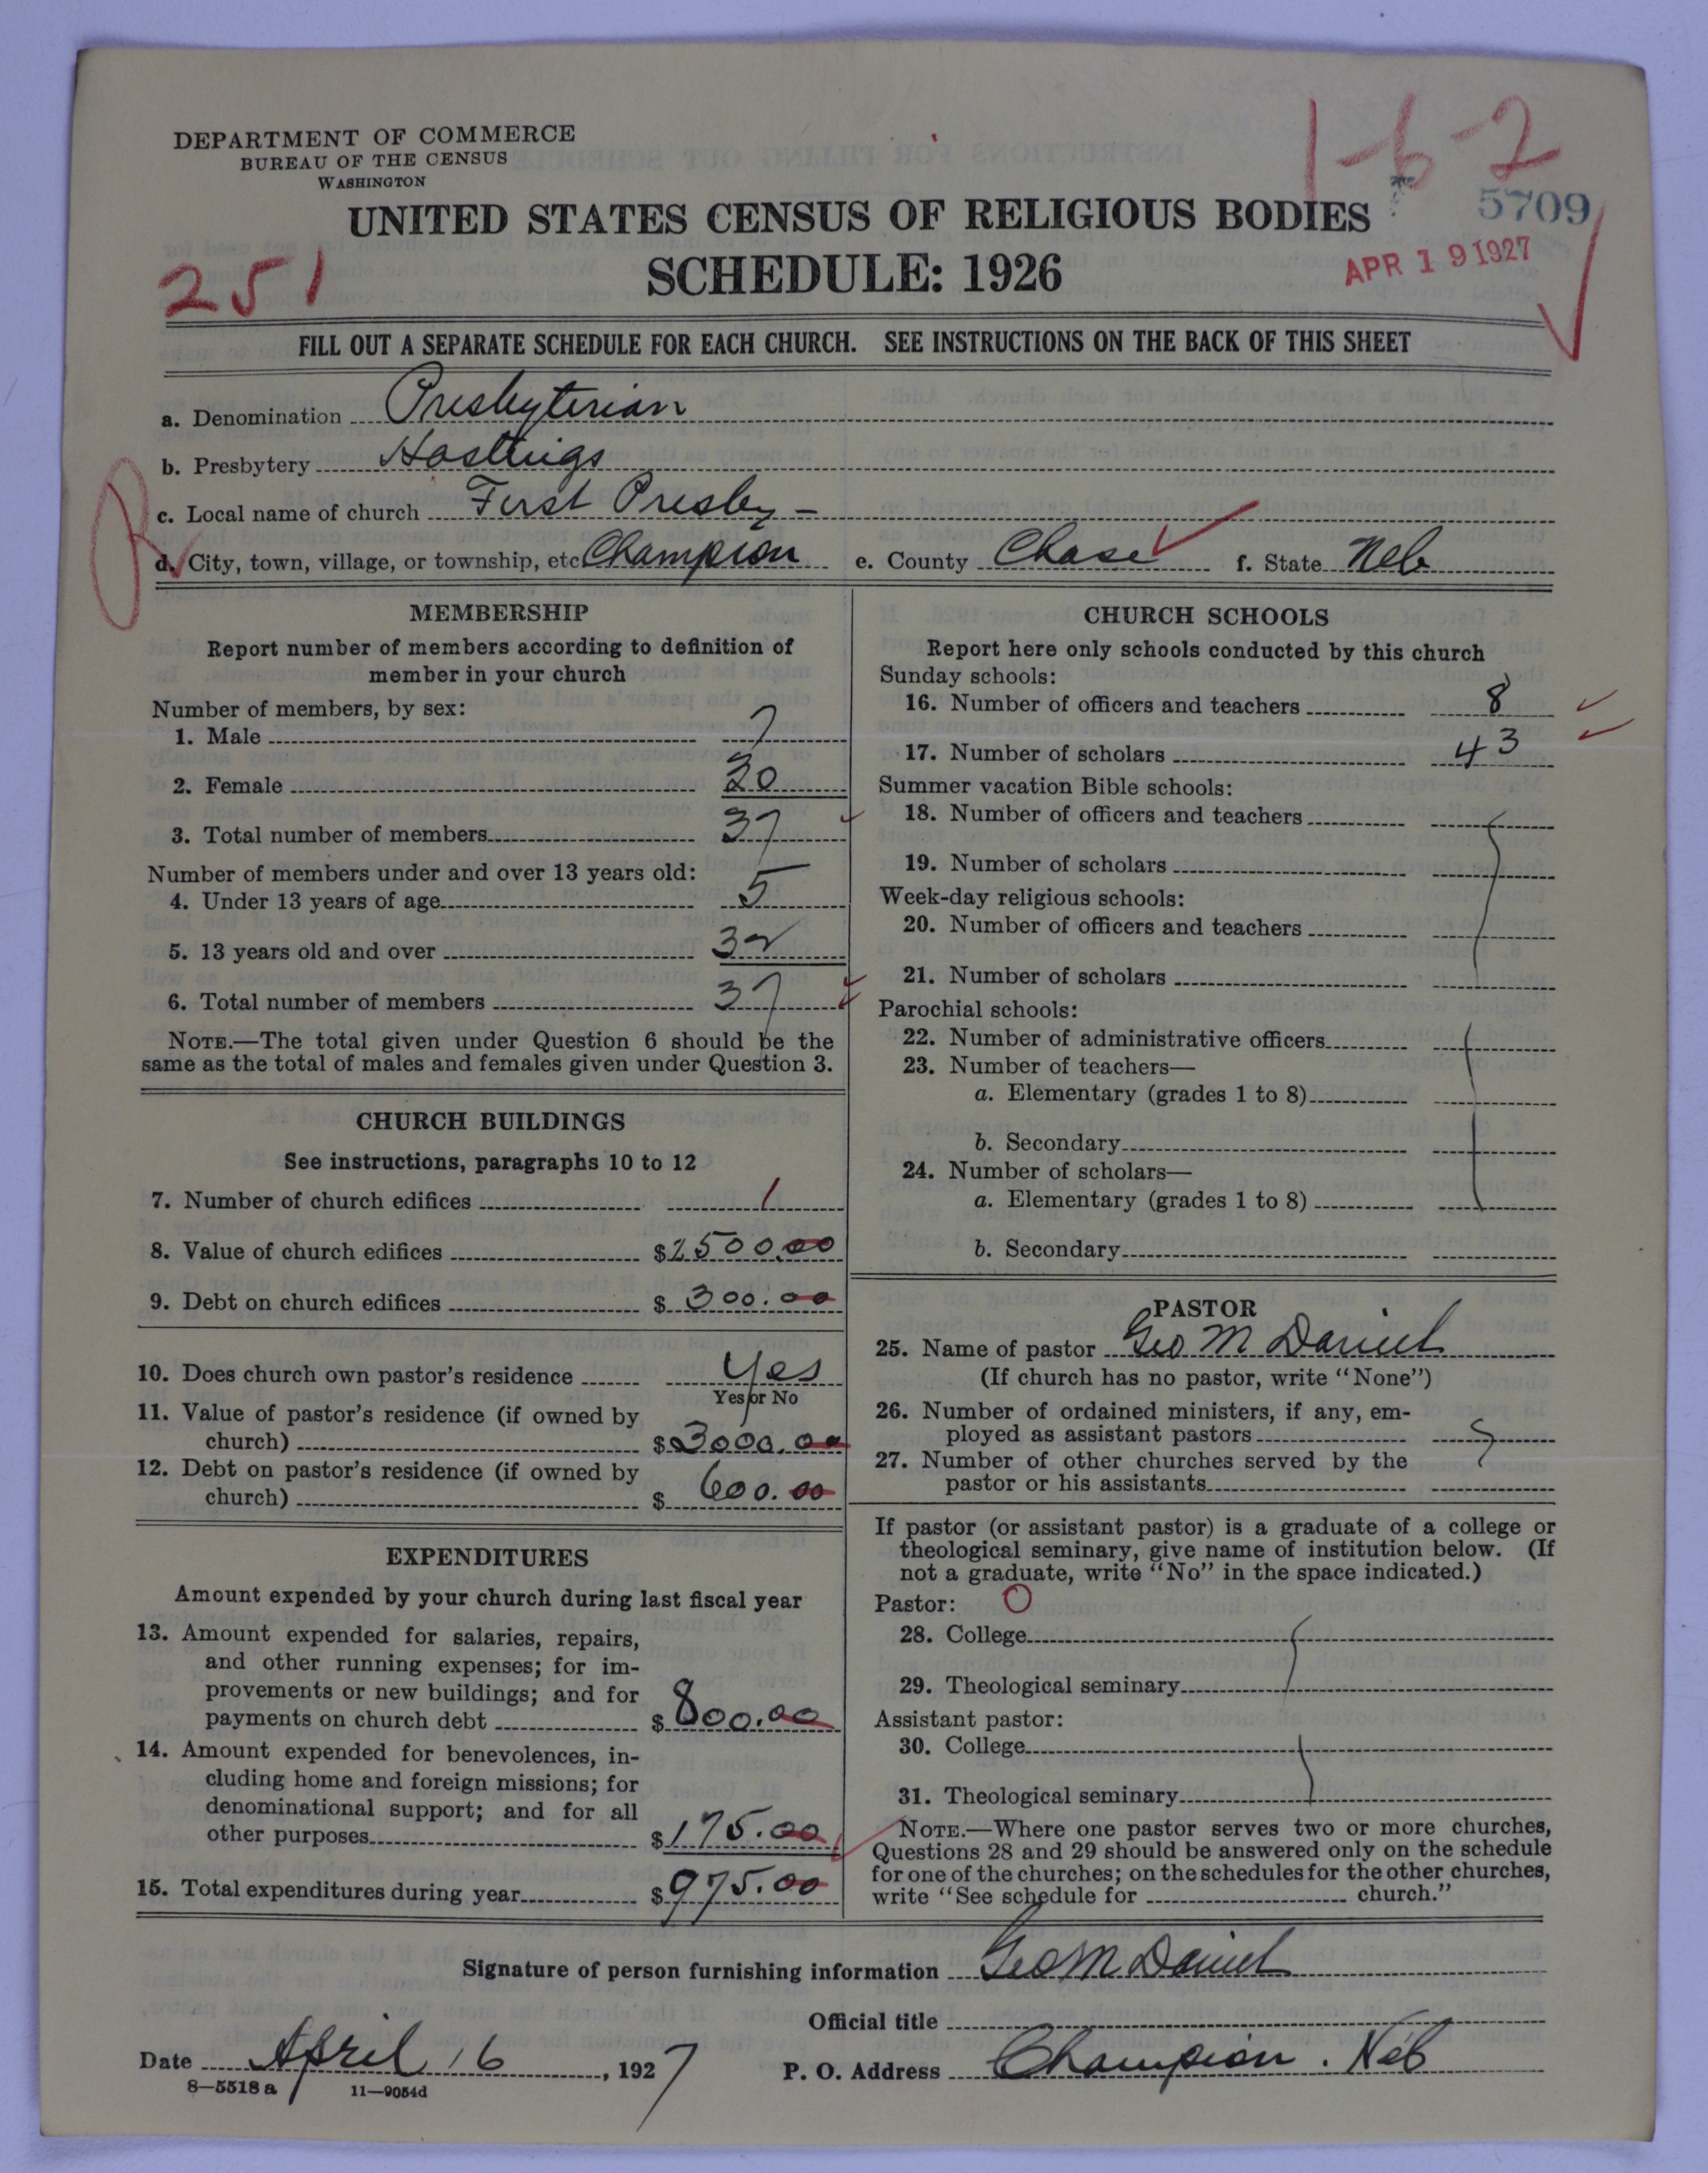 DEPARTMENT OF COMMERCE
BUREAU OF THE CENSUS
WASHINGTON
1-6-2
5709
UNITED STATES CENSUS OF RELIGIOUS BODIES
SCHEDULE: 1926
APR 19 1927
251
FILL OUT A SEPARATE SCHEDULE FOR EACH CHURCH. SEE INSTRUCTIONS ON THE BACK OF THIS SHEET
a. Denomination Presbyterian
b. Presbytery Hastings
c. Local name of church First Presby -
d. City, town, village, or township, etc Champion e. County Chase f. State Neb
MEMBERSHIP
Report number of members according to definition of
member in your church
Number of members, by sex:
1. Male 7
2. Female 30
3. Total number of members 37
Number of members under and over 13 years old:
4. Under 13 years of age 5
5. 13 years old and over 32
6. Total number of members 37
NOTE.—The total given under Question 6 should be the
same as the total of males and females given under Question 3.
CHURCH BUILDINGS
See instructions, paragraphs 10 to 12
7. Number of church edifices 1
8. Value of church edifices $2500.00
9. Debt on church edifices $300.00
10. Does church own pastor's residence Yes
Yes or No
11. Value of pastor's residence (if owned by
church) $3000.00
12. Debt on pastor's residence (if owned by
church) $600.00
EXPENDITURES
Amount expended by your church during last fiscal year
13. Amount expended for salaries, repairs,
and other running expenses; for im-
provements or new buildings; and for
payments on church debt $800.00
14. Amount expended for benevolences, in-
cluding home and foreign missions; for
denominational support; and for all
other purposes $175.00
15. Total expenditures during year $975.00
CHURCH SCHOOLS
Report here only schools conducted by this church
Sunday schools:
16. Number of officers and teachers 8
17. Number of scholars 43
Summer vacation Bible schools:
18. Number of officers and teachers
19. Number of scholars
Week-day religious schools:
20. Number of officers and teachers
21. Number of scholars
Parochial schools:
22. Number of administrative officers
23. Number of teachers—
a. Elementary (grades 1 to 8)
b. Secondary
24. Number of scholars—
a. Elementary (grades 1 to 8)
b. Secondary
PASTOR
25. Name of pastor Geo M Daniel
(If church has no pastor, write "None")
26. Number of ordained ministers, if any, em-
ployed as assistant pastors
27. Number of other churches served by the
pastor or his assistants
If pastor (or assistant pastor) is a graduate of a college or
theological seminary, give name of institution below. (If
not a graduate, write "No" in the space indicated.)
Pastor: O
28. College
29. Theological seminary
Assistant pastor:
30. College
31. Theological seminary
NOTE.—Where one pastor serves two or more churches,
Questions 28 and 29 should be answered only on the schedule
for one of the churches; on the schedules for the other churches,
write "See schedule for church."
Signature of person furnishing information Geo M Daniel
Official title
Date April 16, 1927 P. O. Address Champion. Neb
8—5518 a 11—9054d